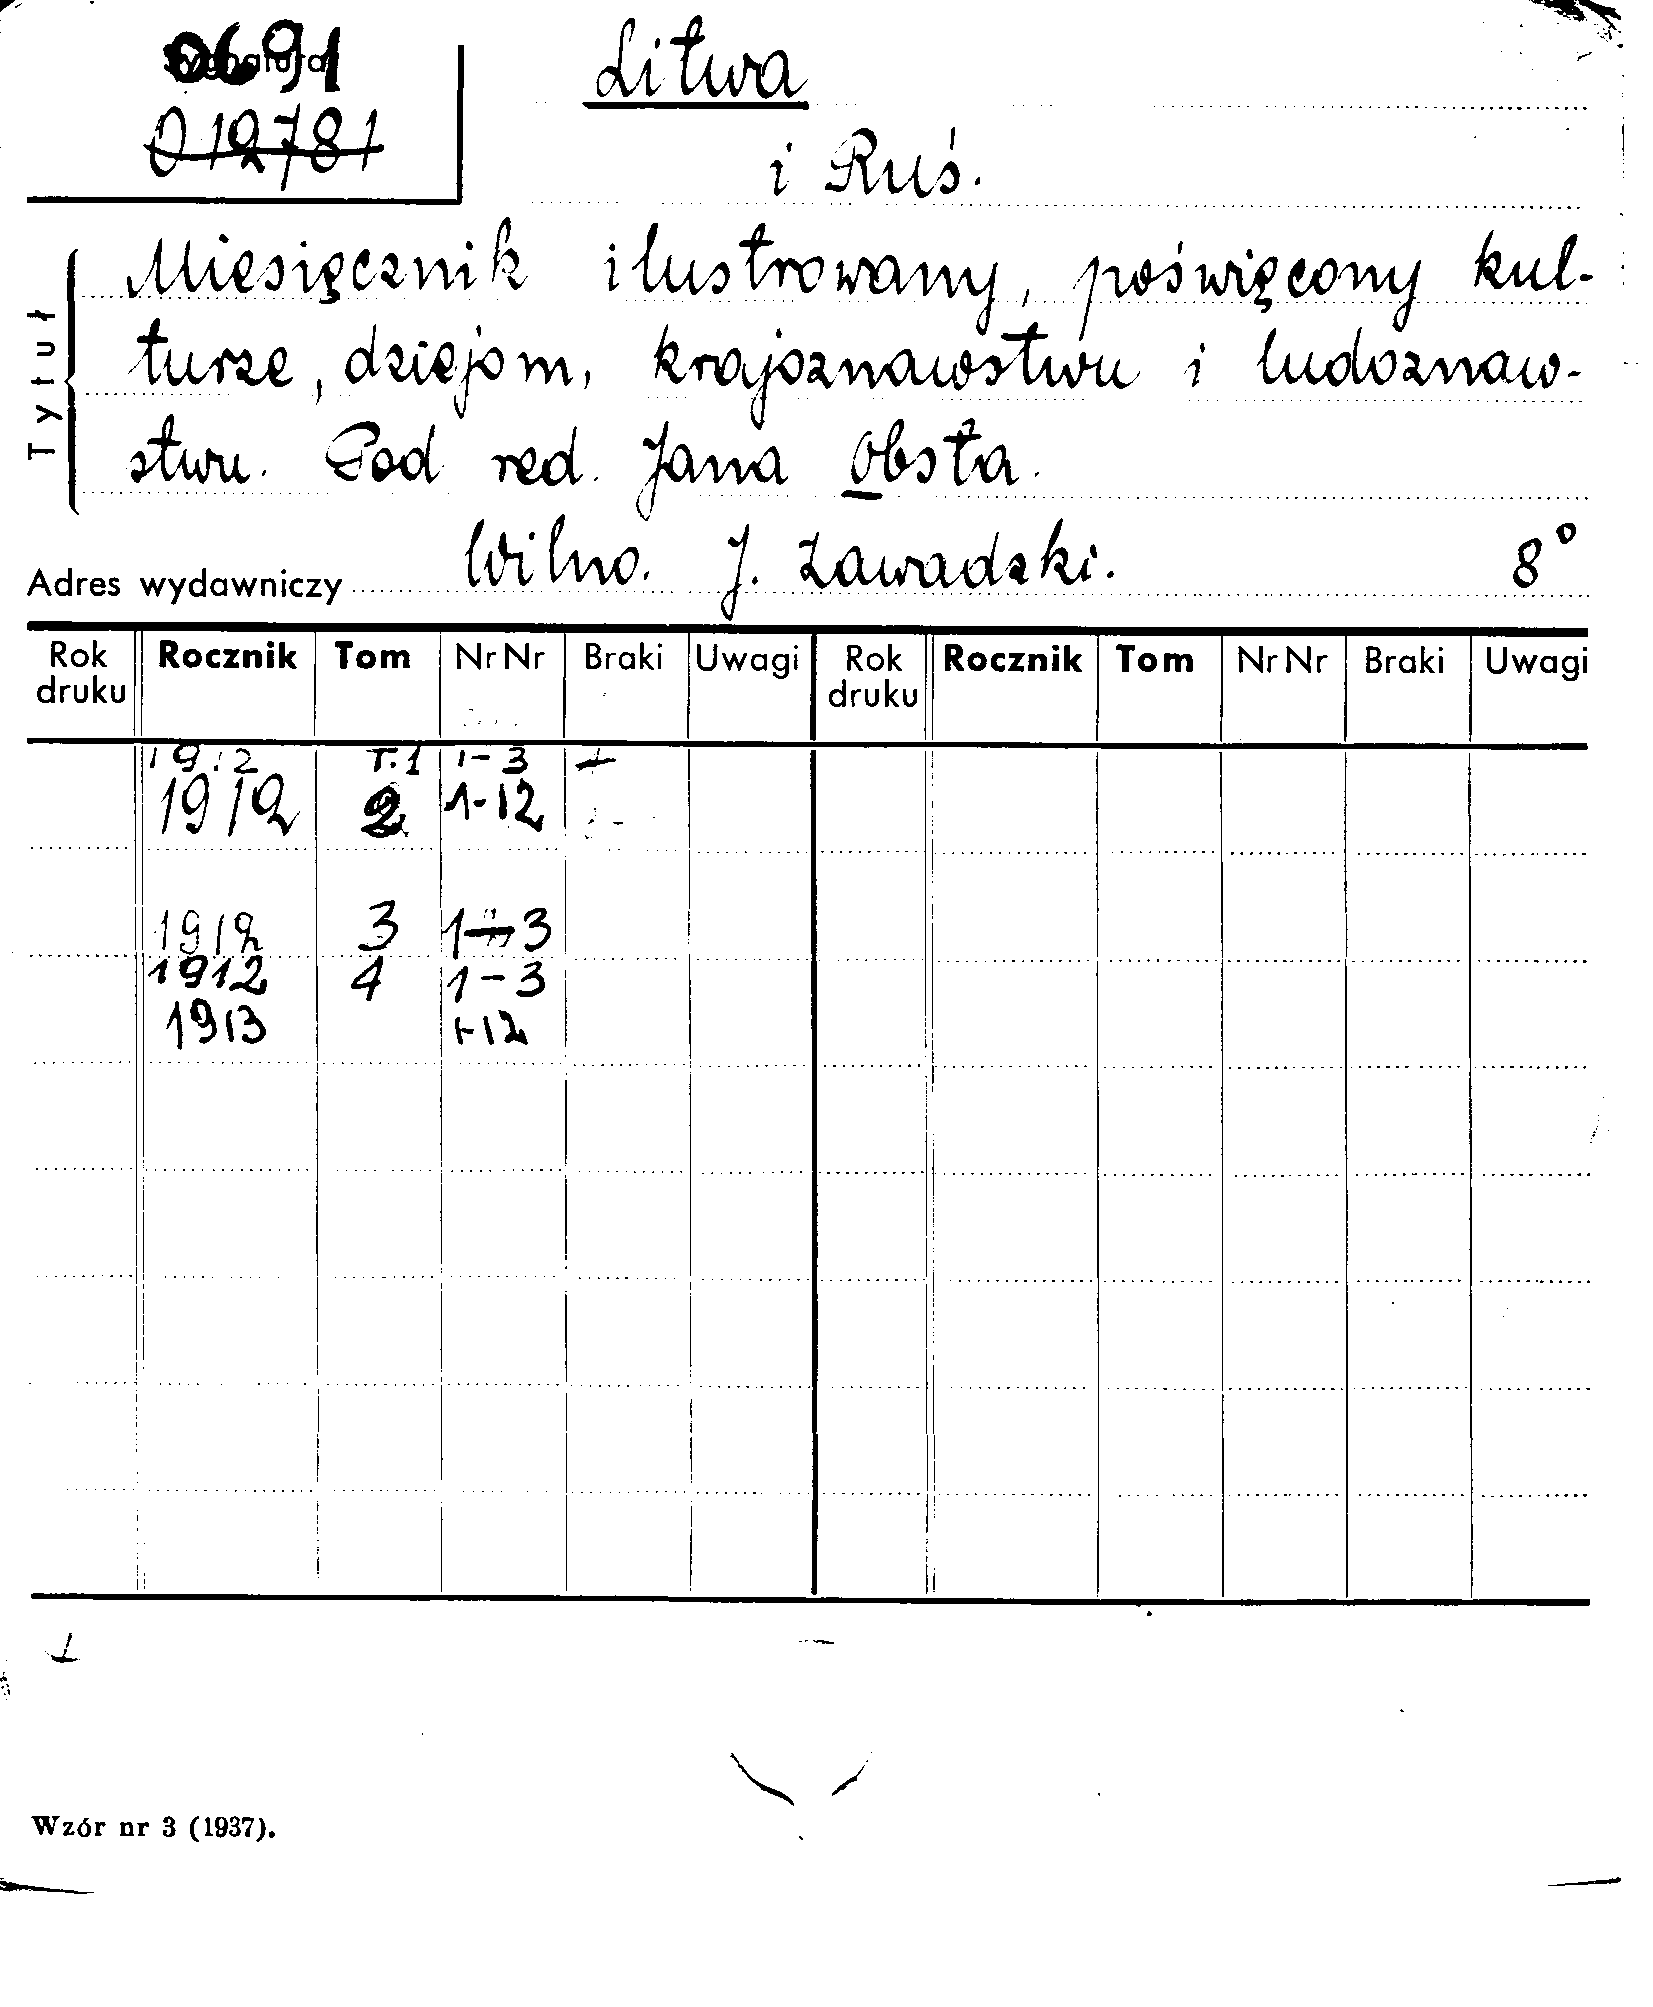 0691
Sygnatura
012781
Litwa
i Ruś.
Tytuł
Miesięcznik ilustrowany, poświęcony kul-
turze, dziejom, krajoznawstwu i ludoznaw-
stwu. Pod red. Jana Obsta.
Adres wydawniczy Wilno. J. Zawadzki. 8°
Rok druku Rocznik Tom Nr Nr Braki Uwagi Rok druku Rocznik Tom Nr Nr Braki Uwagi
1912 T.1 1-3
1912 2 1-12
1912 3 1-3
1912 4 1-3
1913 1-12
Wzór nr 3 (1937).